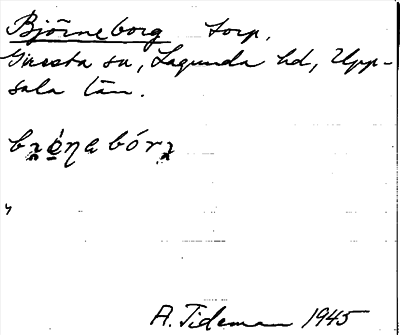 Björneborg torp,
Giresta sn, Lagunda hd, Upp-
sala län.
A. Tideman 1945